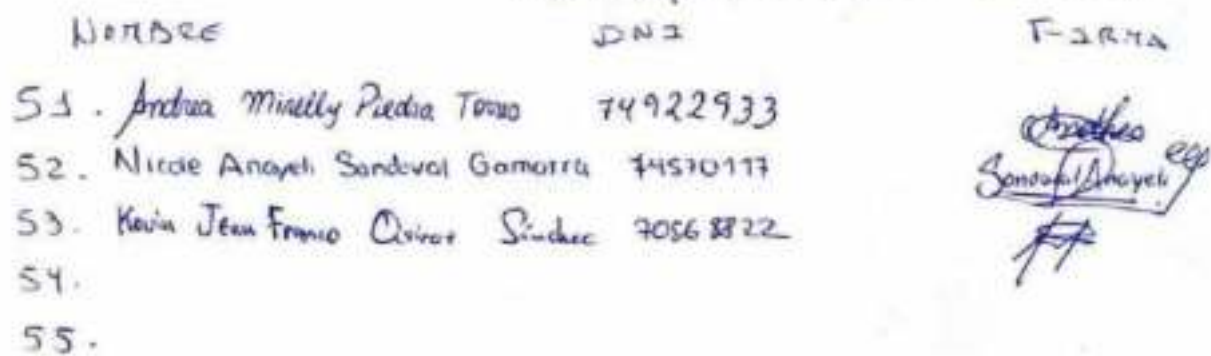 NOMBRE DNI FIRMA
51. Andrea Mirelly Piedra Torres 74922933
52. Nicole Anayeli Sandoval Gamarra 74570117 Sandoval Anayeli
53. Kevin Jean Franco Quiroz Sánchez 70568822
54.
55.